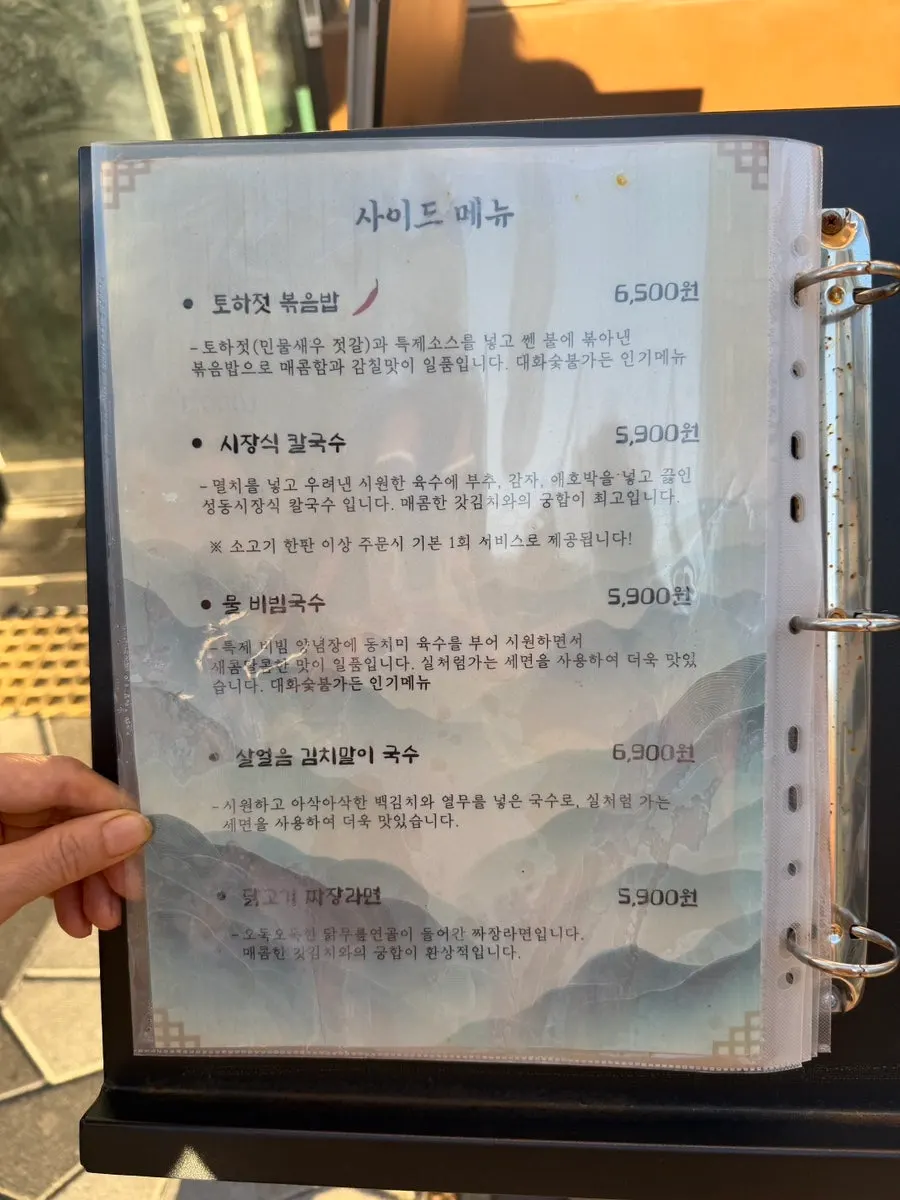 사이드 메뉴
● 토하젓 볶음밥 6,500원
- 토하젓(민물새우 젓갈)과 특제소스를 넣고 쎈 불에 볶아낸
볶음밥으로 매콤함과 감칠맛이 일품입니다. 대화숯불가든 인기메뉴
● 시장식 칼국수 5,900원
- 멸치를 넣고 우려낸 시원한 육수에 부추, 감자, 애호박을 넣고 끓인
성동시장식 칼국수 입니다. 매콤한 갓김치와의 궁합이 최고입니다.
※ 소고기 한판 이상 주문시 기본 1회 서비스로 제공됩니다!
● 물 비빔국수 5,900원
- 특제 비빔 양념장에 동치미 육수를 부어 시원하면서
새콤달콤한 맛이 일품입니다. 실처럼가는 세면을 사용하여 더욱 맛있
습니다. 대화숯불가든 인기메뉴
● 살얼음 김치말이 국수 6,900원
- 시원하고 아삭아삭한 백김치와 열무를 넣은 국수로, 실처럼 가는
세면을 사용하여 더욱 맛있습니다.
● 닭고기 짜장라면 5,900원
- 오독오독한 닭무릎연골이 들어간 짜장라면입니다.
매콤한 갓김치와의 궁합이 환상적입니다.